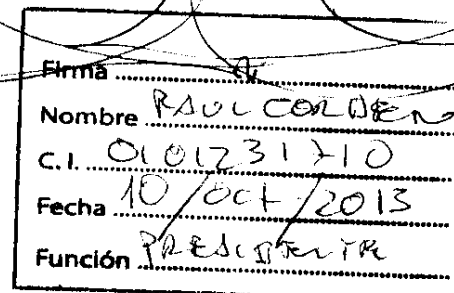 Firma
Nombre RAUL CORDERO
C. I. 0101231710
Fecha 10/oct/2013
Función PRESIDENTE